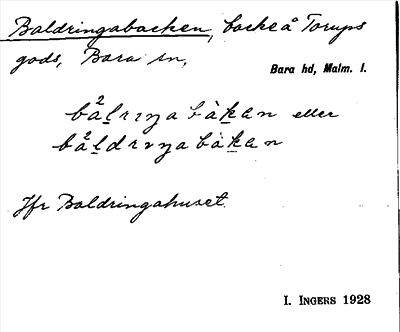 Baldringabacken, backe å Torups
gods, Bara sn,
Bara hd, Malm. l.
bå²lrɪŋabàkan eller
bå²ldrɪŋabàkan
Jfr Baldringahuset.
I. INGERS 1928